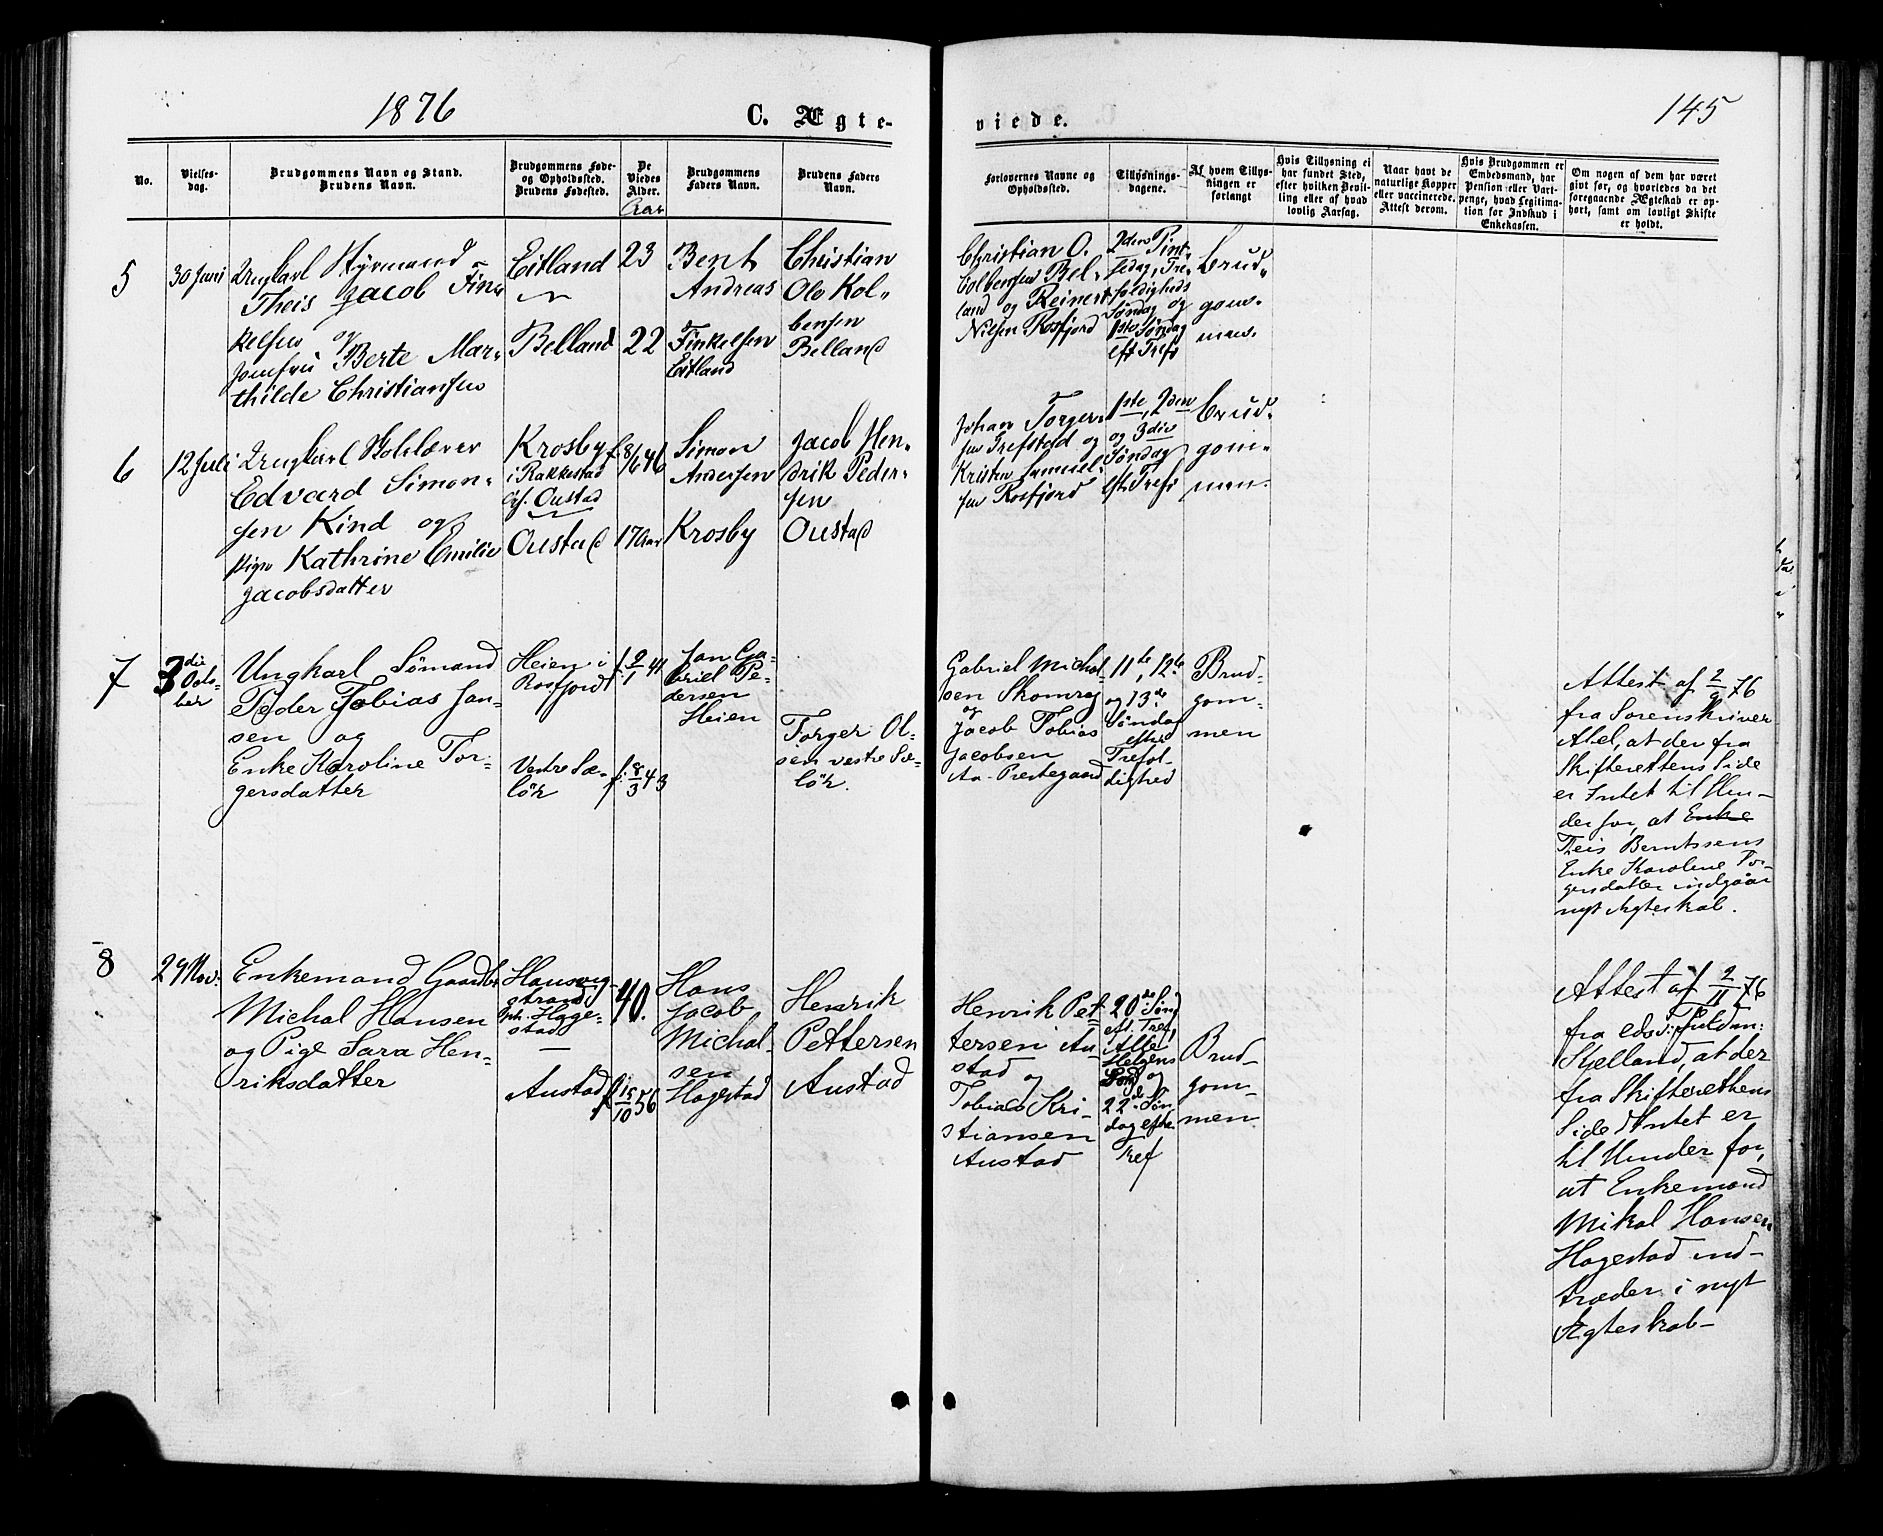 1876
C. Ægte-
viede.
145
No.
Vielses-
dag.
Brudgommens Navn og Stand.
Brudens Navn.
Brudgommens Føde-
og Opholdssted.
Brudens Fødested.
De
Viedes
Alder.
Aar
Brudgommens
Faders Navn.
Brudens Faders
Navn.
Forlovernes Navne og
Opholdssted.
Tillysnings-
dagene.
Af hvem Tillys-
ningen er
forlangt
Hvis Tillysning ei
har fundet Sted,
efter hvilken Bevil-
ling eller af hvad
lovlig Aarsag.
Naar havt de
naturlige Kopper
eller vaccinerede.
Attest derom.
Hvis Brudgommen er
Embedsmand, har
Pension eller Vart-
penge, hvad Legitima-
tion for Indskud i
Enkekassen.
Om nogen af dem har været
gift før, og hvorledes da det
foregaaende Ægteskab er op-
hørt, samt om lovligt Skifte
er holdt.
5
30 Juni
Ungkarl Styrmand
Theis Jacob Fin-
kelsen og
Jomfru Berte Mar-
thilde Christiansen
Eitland
Belland
23
22
Bent
Andreas
Finkelsen
Eitland
Christian
Ole Kol-
bensen
Belland
Christian O.
Colbensen Bel-
land og Reinert
Nilsen Rosfjord
2den Pint-
sedag, Tre-
foldigheds
Søndag og
1ste Søndag
eft Tref
Brud-
gom-
men.
6
12 Juli
Ungkarl Skolelærer
Edvard Simon-
sen Kind og
Pige Kathrine Emilie
Jacobsdatter
Krosby
i Rakkestad
Oph. Oustad
Oustad
f. 8/6 46
17 Aar
Simon
Andersen
Krosby
Jacob Hen-
drik Peder-
sen
Oustad
Johan Torger-
sen Trefstad og
Kristen Samuel-
sen Rosfjord
1ste, 2den
og 3die
Søndag
eft. Tref
Brud-
gom-
men.
7
3die
Octo-
ber
Ungkarl Sømand
Peder Tobias Jan-
sen og
Enke Karoline Tor-
gersdatter
Heien i
Rosfjord
Vestre Sæ-
lör
f. 2/1 41
f. 8/3 43
Jan Ga-
briel Pe-
dersen
Heien
Torger Ol-
sen vestre Sæ-
lör.
Gabriel Michal-
sen Skomrag
og
Jacob Tobias
Jacobsen
Aa-Prestegaard
11te, 12te
og 13de
Søndag
efter
Trefol-
dighed
Brud-
gom-
men
Attest af 2/9 76
fra Sorenskriver
Abel, at der fra
Skifterettens Side
er Intet til Hin-
der for, at Enke
Theis Berntsens
Enke Karoline Tor-
gersdatter indgaar
nyt Ægteskab.
8
29 Nov.
Enkemand Gaardbr
Michal Hansen
og Pige Sara Hen-
riksdatter
Hausvig-
strand
Oph. Hage-
stad
Austad
40.
f. 15/10 56
Hans
Jacob
Michal-
sen
Hagestad
Henrik
Pettersen
Austad
Henrik Pet-
tersen Au-
stad og
Tobias Kri-
stiansen
Austad
20de Sønd
eft. Tref,
Alle
Helgens
Sønd og
22de Søn
dag efter
Tref
Brud-
gom-
men
Attest af 2/11 76
fra edsv. Fuldm:
Kjelland, at der
fra Skifterettens
Side Intet er
til Hinder for,
at Enkemand
Mikal Hansen
Hagestad ind-
træder i nyt
Ægteskab-